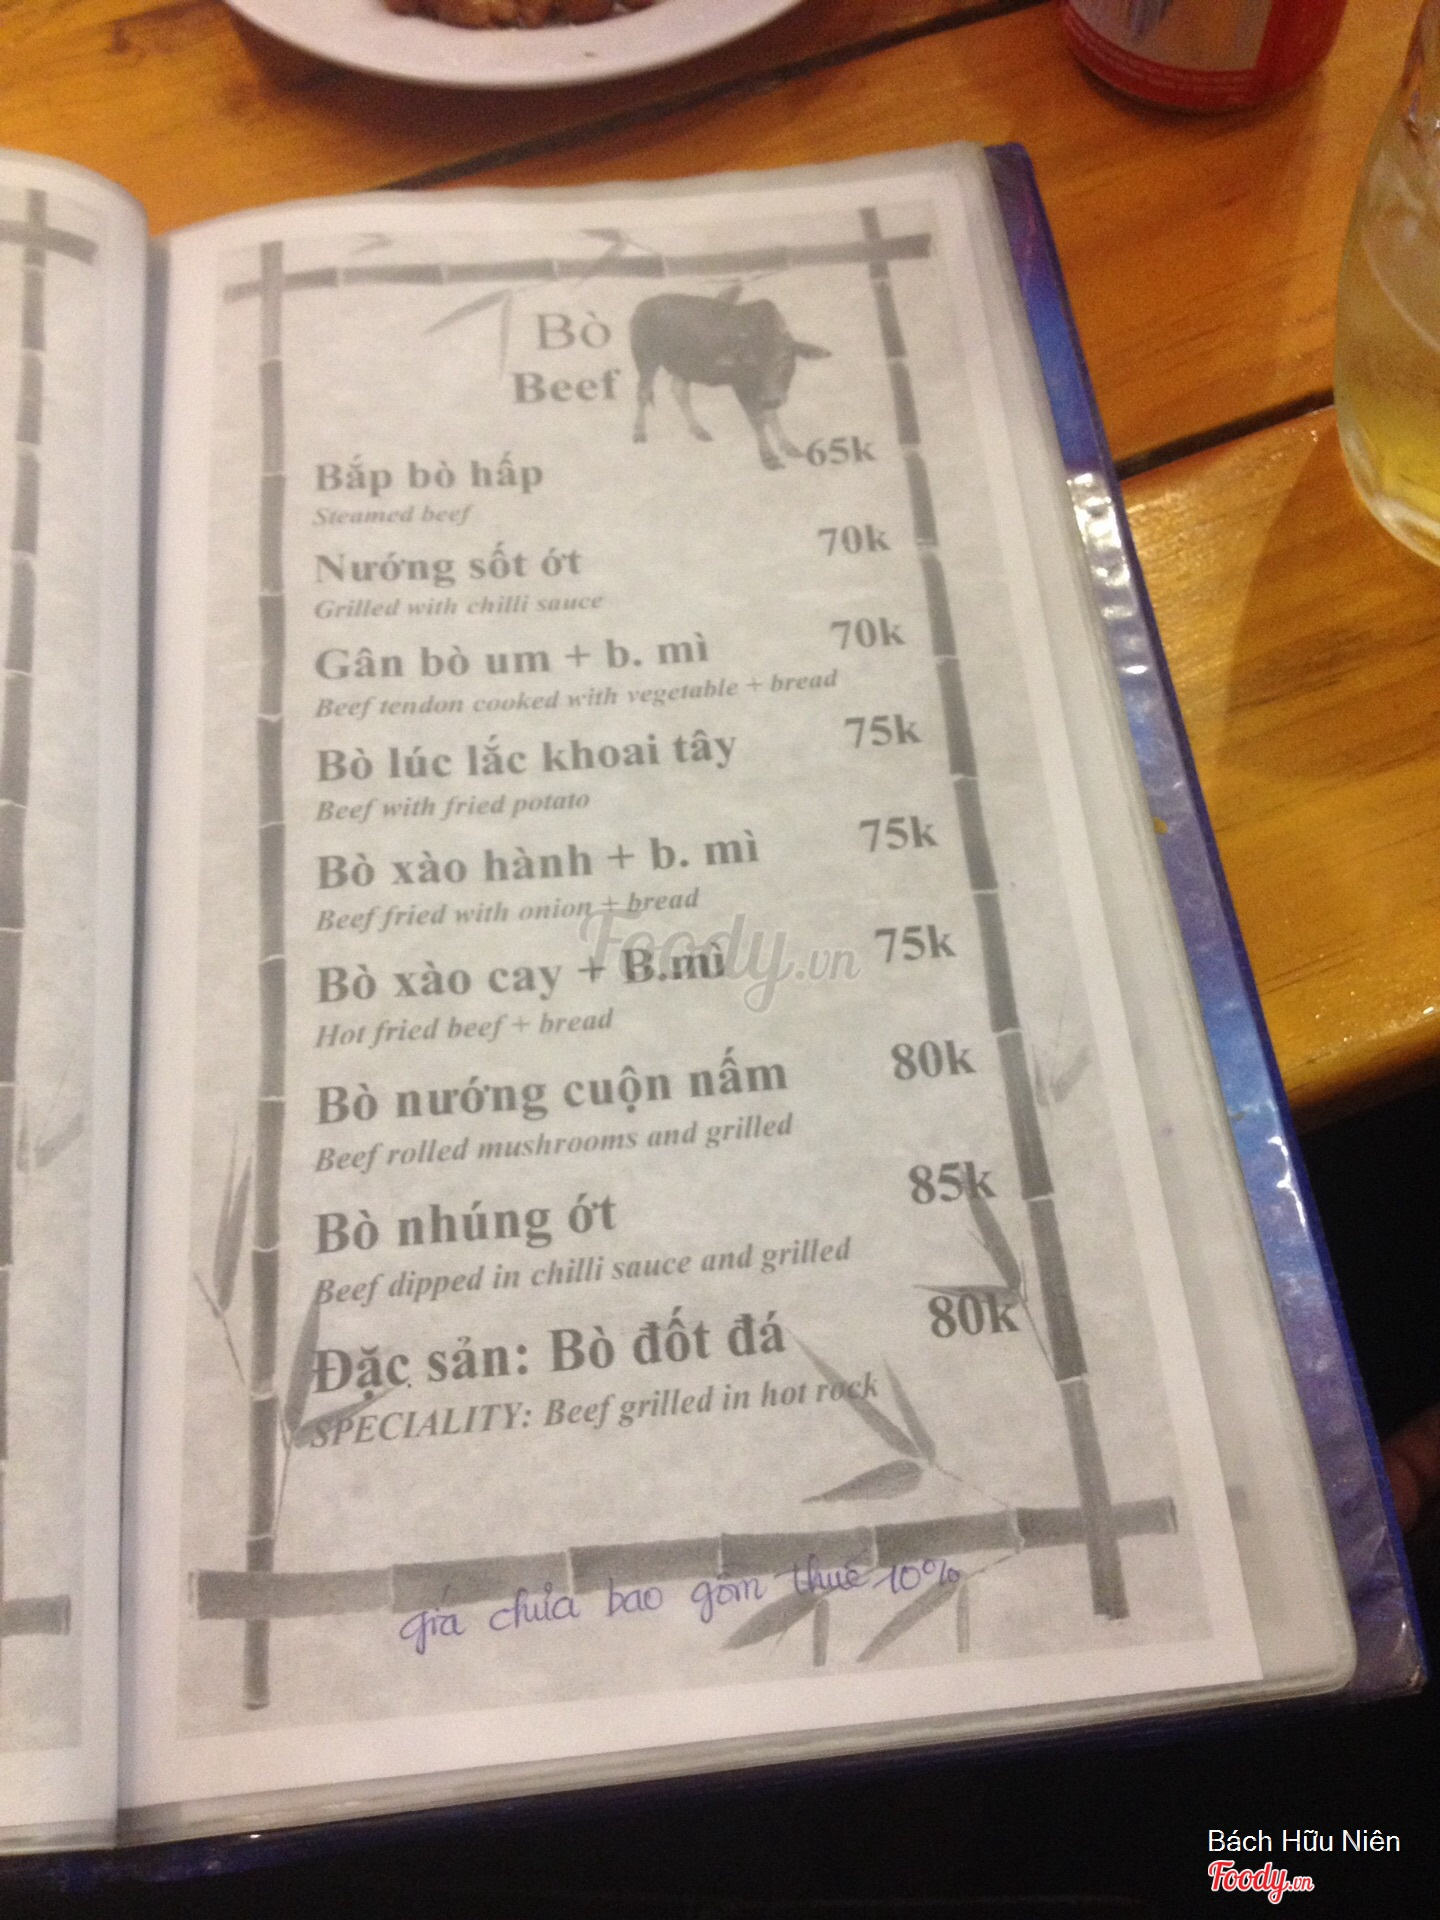 Bò
Beef
Bắp bò hấp 65k
Steamed beef
Nướng sốt ớt 70k
Grilled with chilli sauce
Gân bò um + b. mì 70k
Beef tendon cooked with vegetable + bread
Bò lúc lắc khoai tây 75k
Beef with fried potato
Bò xào hành + b. mì 75k
Beef fried with onion + bread
Bò xào cay + B.mì 75k
Hot fried beef + bread
Bò nướng cuộn nấm 80k
Beef rolled mushrooms and grilled
Bò nhúng ớt 85k
Beef dipped in chilli sauce and grilled
Đặc sản: Bò đốt đá 80k
SPECIALITY: Beef grilled in hot rock
giá chưa bao gồm thuế 10%
Foody.vn
Bách Hữu Niên
Foody.vn